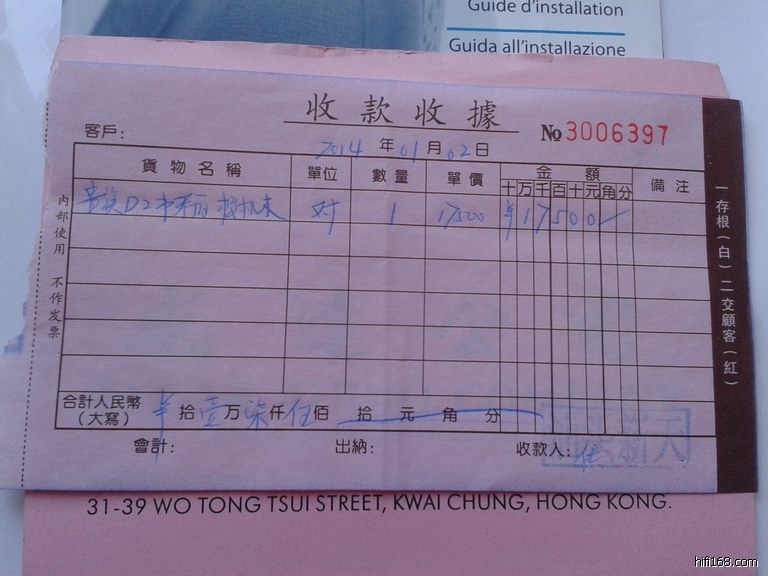 Guide d'installation
Guida all'installazione
收款收據
№3006397
客戶:
2014年01月02日
貨物名稱 單位 數量 單價 金額 備注
十万千百十元角分
D2 对 1 17500 ¥17500
合計人民幣（大寫） 拾壹万柒仟伍佰拾元角分
會計: 出納: 收款人:
內部使用 不作发票
一存根（白）二交顧客（紅）
31-39 WO TONG TSUI STREET, KWAI CHUNG, HONG KONG.
hifi168.com